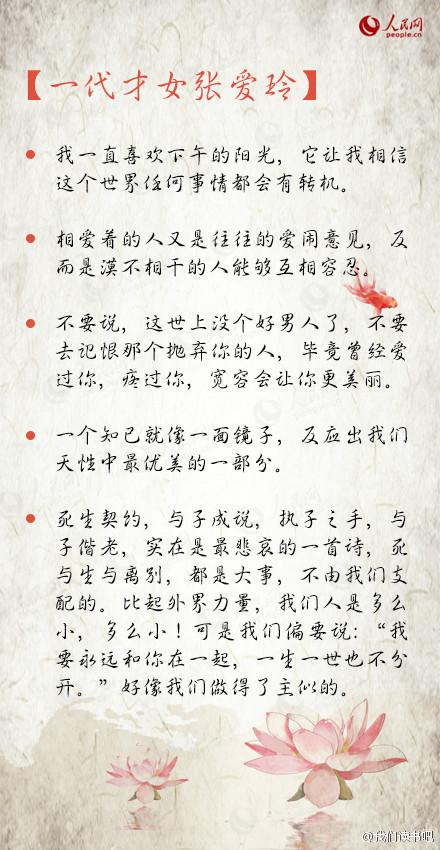 人民网
people.cn
【一代才女张爱玲】
我一直喜欢下午的阳光，它让我相信
这个世界任何事情都会有转机。
相爱着的人又是往往的爱闹意见，反
而是漠不相干的人能够互相容忍。
不要说，这世上没个好男人了，不要
去记恨那个抛弃你的人，毕竟曾经爱
过你，疼过你，宽容会让你更美丽。
一个知已就像一面镜子，反应出我们
天性中最优美的一部分。
死生契约，与子成说，执子之手，与
子偕老，实在是最悲哀的一首诗，死
与生与离别，都是大事，不由我们支
配的。比起外界力量，我们人是多么
小，多么小！可是我们偏要说：“我
要永远和你在一起，一生一世也不分
开。”好像我们做得了主似的。
@我们读书吧